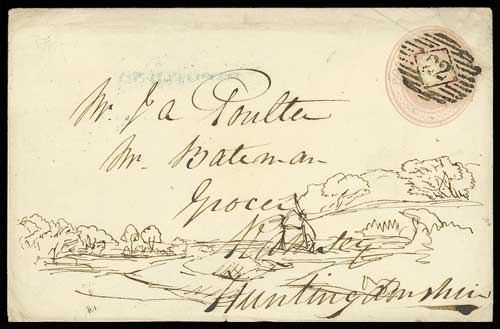 22
Mr. J A Poulter
Mr. Bateman
Grocer
Ramsey
Huntingdonshire